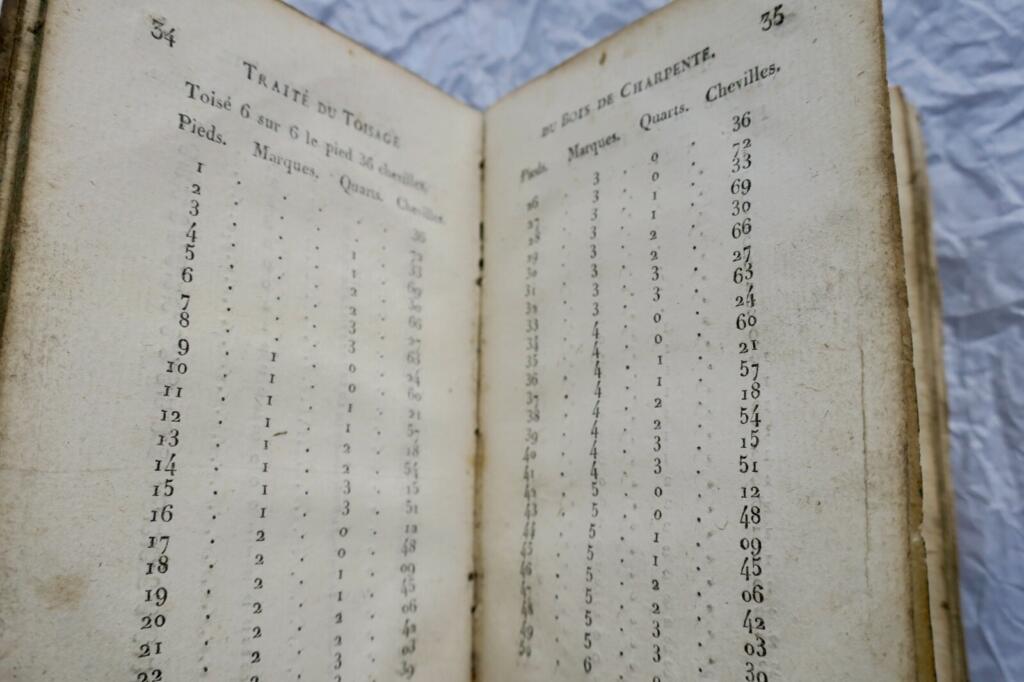 34
TRAITÉ DU TOISAGE
Toisé 6 sur 6 le pied 36 chevilles.
Pieds. Marques. Quarts. Chevilles.
1 . . . 36
2 . . . 72
3 . . 1 . 33
4 . . 1 . 69
5 . . 2 . 30
6 . . 2 . 66
7 . . 3 . 27
8 . . 3 . 63
9 . 1 . 0 . 24
10 . 1 . 0 . 60
11 . 1 . 1 . 21
12 . 1 . 1 . 57
13 . 1 . 2 . 18
14 . 1 . 2 . 54
15 . 1 . 3 . 15
16 . 1 . 3 . 51
17 . 2 . 0 . 12
18 . 2 . 0 . 48
19 . 2 . 1 . 09
20 . 2 . 1 . 45
21 . 2 . 2 . 06
22 . 2 . 2 . 42
35
DU BOIS DE CHARPENTE.
Pieds. Marques. Quarts. Chevilles.
26 . 3 . 0 . 36
27 . 3 . 0 . 72
28 . 3 . 1 . 33
29 . 3 . 1 . 69
30 . 3 . 2 . 30
31 . 3 . 2 . 66
32 . 3 . 3 . 27
33 . 3 . 3 . 63
34 . 4 . 0 . 24
35 . 4 . 0 . 60
36 . 4 . 1 . 21
37 . 4 . 1 . 57
38 . 4 . 2 . 18
39 . 4 . 2 . 54
40 . 4 . 3 . 15
41 . 4 . 3 . 51
42 . 5 . 0 . 12
43 . 5 . 0 . 48
44 . 5 . 1 . 09
45 . 5 . 1 . 45
46 . 5 . 2 . 06
47 . 5 . 2 . 42
48 . 5 . 3 . 03
49 . 5 . 3 . 39
50 . 6